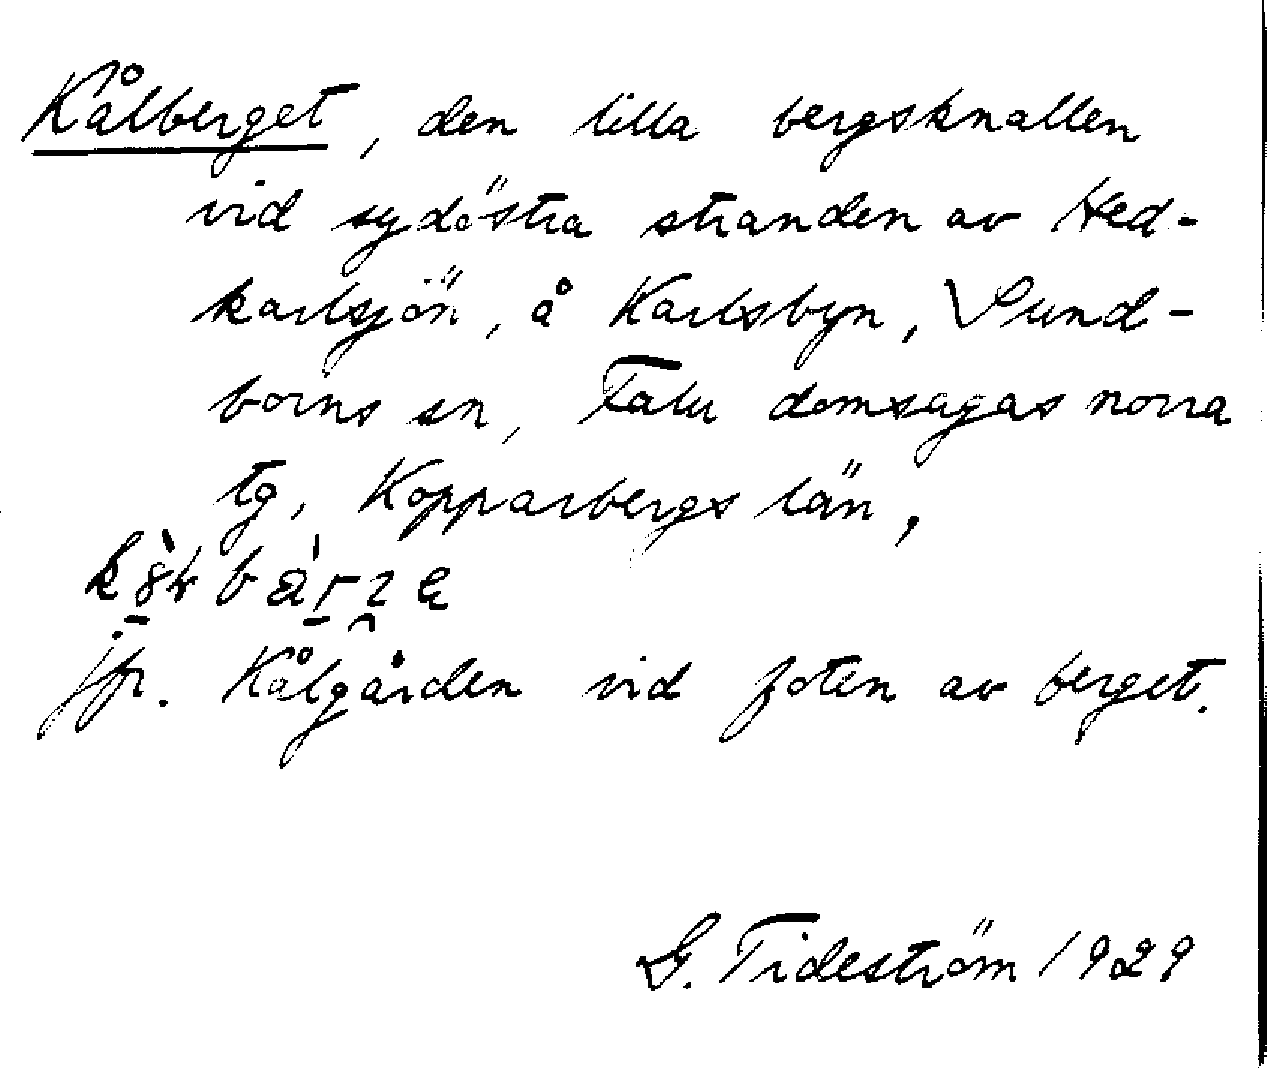 Kålberget, den lilla bergsknallen
vid sydöstra stranden av Hed-
karlsjön, å Karlsbyn, Sund-
borns sn, Falu domsagas norra
tg, Kopparbergs län,
jfr. Kålgården vid foten av berget.
G. Tideström 1929